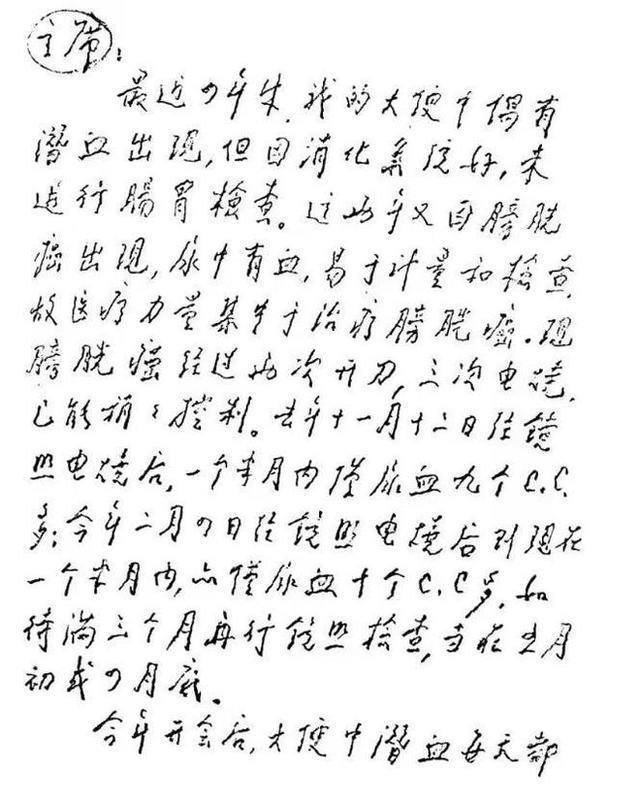 主席：
最近四年来，我的大便中偶有
潜血出现，但因消化系统好，未
进行腸胃檢查。这两年又因膀胱
癌出现，尿中有血，易于计量和檢查，
故医疗力量集中于治疗膀胱癌。现
膀胱癌经过两次开刀，三次电燒，
已能稍稍控制。去年十一月十二日经镜
照电燒后，一个半月内僅尿血九个C.C.
多；今年二月四日经镜照电燒后到现在
一个半月内，亦僅尿血十个C.C多，如
待满三个月再行镜照檢查，当在五月
初或四月底。
今年开会后，大便中潜血每天都